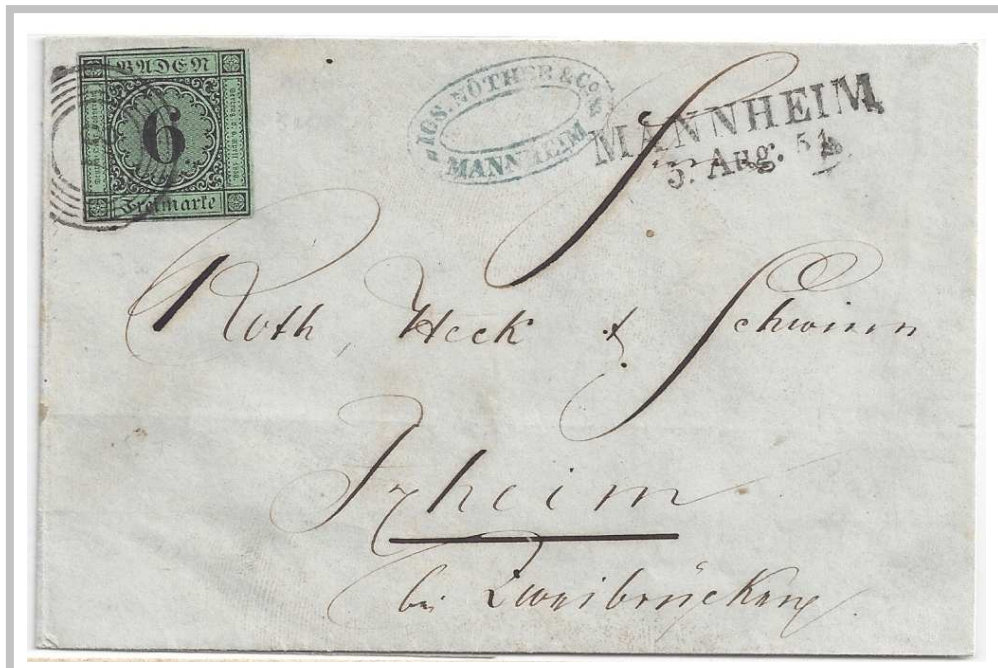 BADEN
6
Freimarke
IGS. NÖTHER & Co.
MANNHEIM
MANNHEIM
5. Aug. 51
Roth, Heck & Schwinn
Irheim
bei Zweibrücken